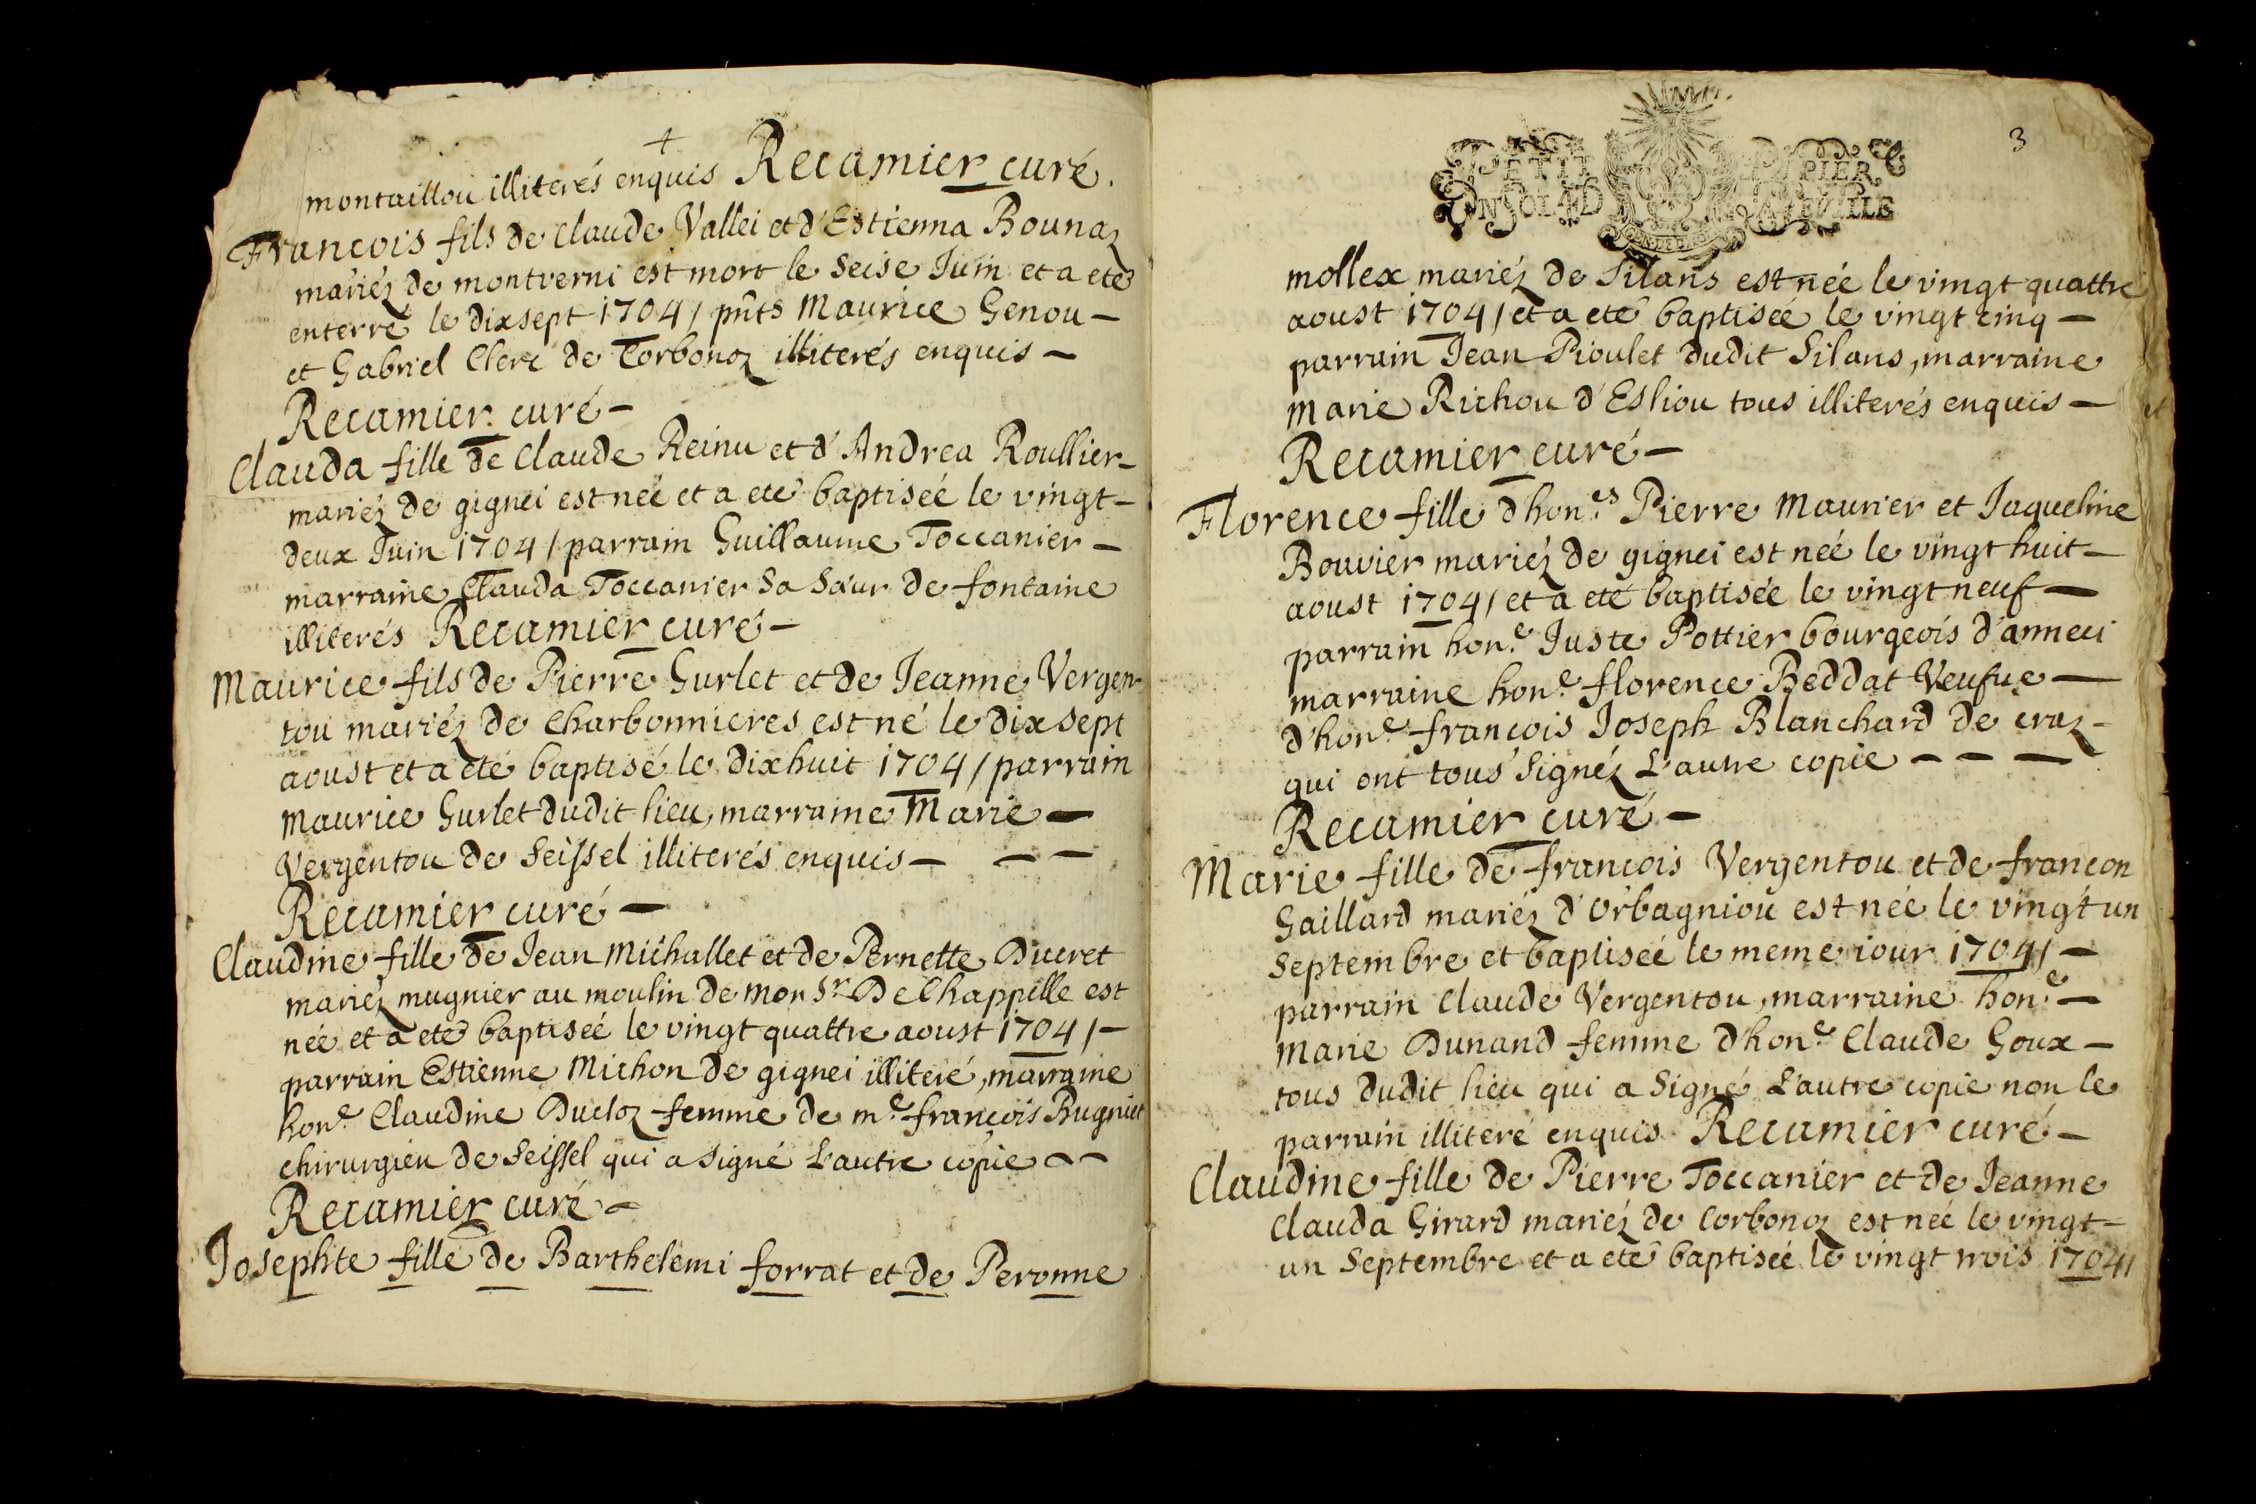 +
montaillou illiterés enquis Recamier curé.
Francois fils de Claude Vallei et d'Estienna Bounaz
mariéz de montverni est mort le seise Juin et a eté
enterré le dix sept 1704/ pnts Maurice Genou -
et Gabriel Clerc de Corbonoz illiterés enquis -
Recamier curé -
Clauda fille de Claude Reinu et d'Andrea Roullier -
mariéz de gignei est neé et a eté baptiseé le vingt -
deux Juin 1704/ parrain Guillaume Toccanier -
marraine Clauda Toccanier sa sœur de fontaine
illiterés Recamier curé -
Maurice fils de Pierre Gurlet et de Jeanne Vergen
tou mariéz de Charbonnieres est né le dix sept
aoust et a eté baptisé le dix huit 1704/ parrain
Maurice Gurlet dudit lieu, marraine Marie -
Vergentou de Seissel illiterés enquis - - -
Recamier curé -
Claudine fille de Jean Michallet et de Pernette Ducret
mariéz mugnier au moulin de Mon Sr De Chappelle est
née et a eté baptiseé le vingt quattre aoust 1704/ -
parrain Estienne Michon de gignei illiteré, marraine
hon.e Claudine Ducloz femme de m.e françois Bugniet
chirurgien de Seissel qui a signé L'autre copie - -
Recamier curé -
Josephte fille de Barthelemi forrat et de Peronne
3
PETIT PAPIER
UN SOL 4 D LA FEUILLE
mollex mariéz de Silans est née le vingt quattre
aoust 1704/ et a eté baptiseé le vingt cinq -
parrain Jean Pioulet dudit Silans, marraine
Marie Richou d'Esliou tous illiterés enquis -
Recamier curé -
Florence fille d'hon.es Pierre Maurier et Jaqueline
Bouvier mariéz de gignei est neé le vingt huit -
aoust 1704/ et a eté baptisée le vingt neuf -
parrain hon.e Juste Pottier bourgeois d'anneci
marraine hon.e florence Beddat Veufue -
d'hon.e françois Joseph Blanchard de craz -
qui ont tous signéz L'autre copie - - -
Recamier curé -
Marie fille de françois Vergentou et de françon
Gaillard mariéz d'Orbagniou est née le vingt un
Septembre et baptiseé le meme iour 1704/ -
parrain Claude Vergentou, marraine hon.e -
Marie Dunand femme d'hon.e Claude Goux -
tous dudit lieu qui a signé L'autre copie non le
parrain illiteré enquis Recamier curé -
Claudine fille de Pierre Toccanier et de Jeanne
Clauda Girard mariéz de Corbonoz est neé le vingt -
un Septembre et a eté baptiseé le vingt trois 1704/